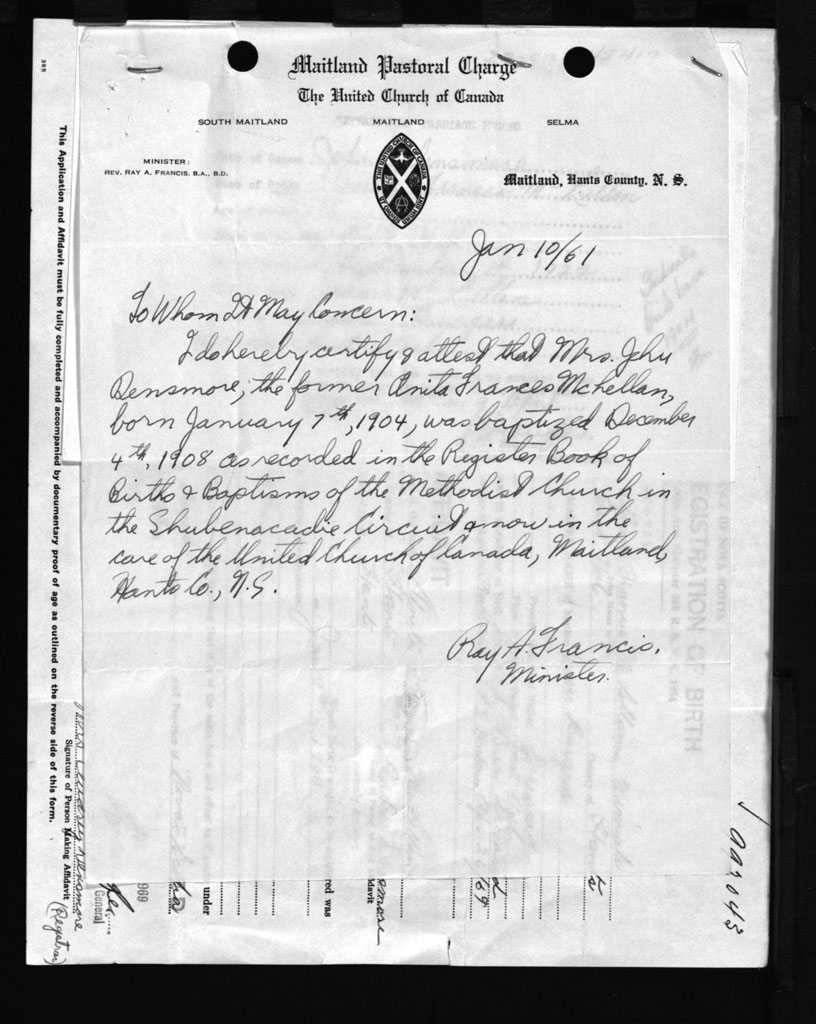 Maitland Pastoral Charge
The United Church of Canada
SOUTH MAITLAND MAITLAND SELMA
MINISTER:
REV. RAY A. FRANCIS, B.A., B.D.
THE UNITED CHURCH OF CANADA
Maitland, Hants County, N. S.
Jan 10/61
To Whom It May Concern:
I do hereby certify & attest that Mrs. John
Densmore, the former Anita Frances McLellan,
born January 7th, 1904, was baptized December
4th, 1908 as recorded in the Register Book of
Births & Baptisms of the Methodist Church in
the Shubenacadie Circuit & now in the
care of the United Church of Canada, Maitland,
Hants Co., N.S.
Ray A. Francis.
Minister.
This Application and Affidavit must be fully completed and accompanied by documentary proof of age as outlined on the reverse side of this form.
Densmore
Signature of Person Making Affidavit
(Registrar)
General
969
under
red was
davit
REGISTRATION OF BIRTH